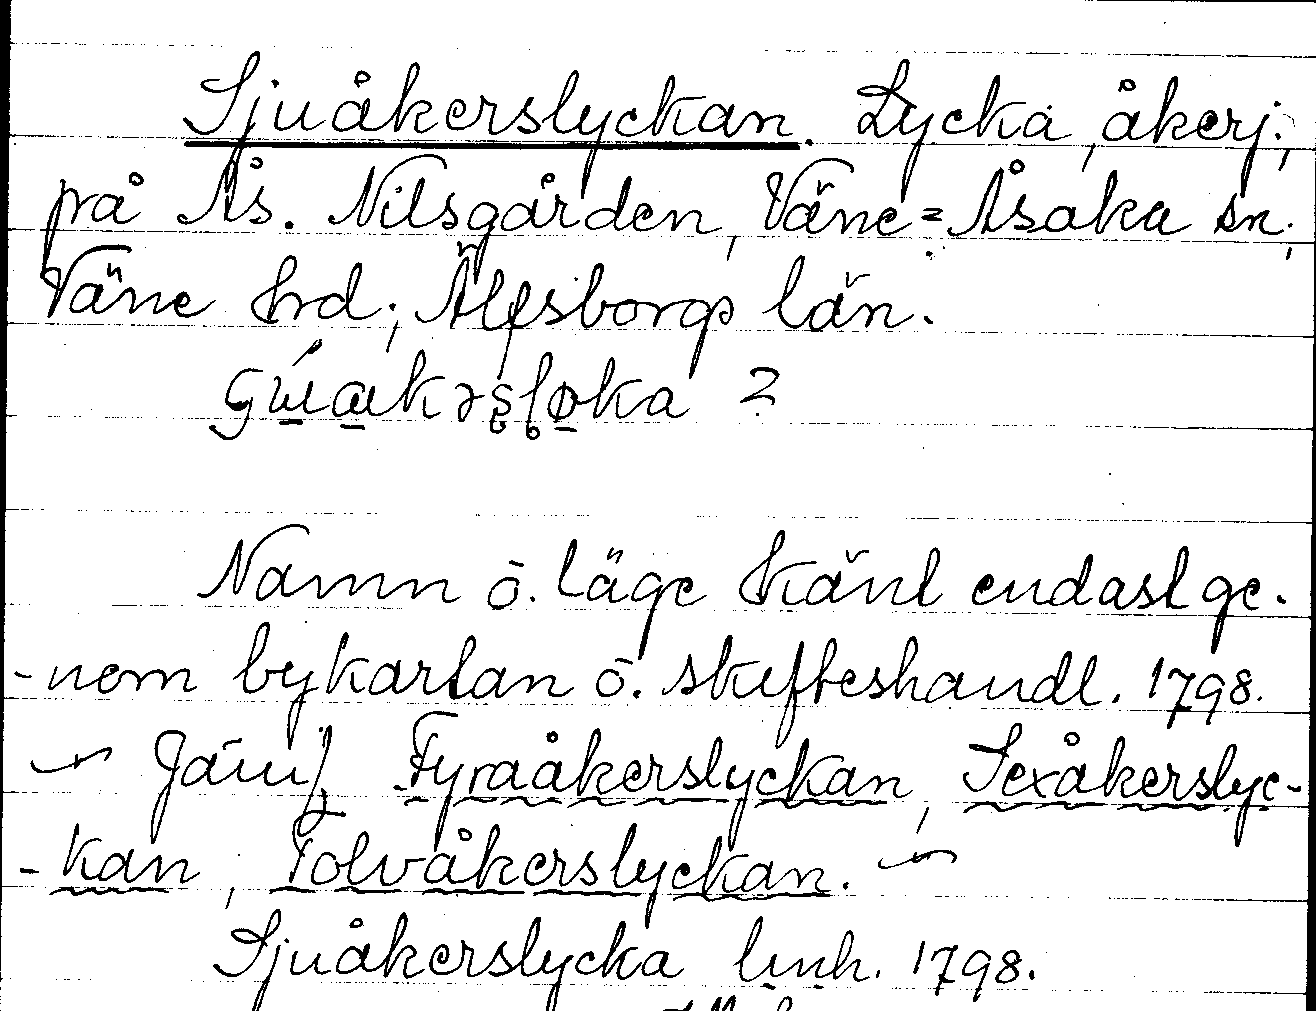 Sjuåkerslyckan. Lycka, åkerj.,
på Ås. Nilsgården, Väne=Åsaka sn,
Väne hrd; Älfsborgs län.
Namn o. läge känt endast ge-
-nom bykartan o. skifteshandl. 1798.
Jämf. Fyraåkerslyckan, Sexåkerslyc-
-kan, Tolvåkerslyckan.
Sjuåkerslycka lmh. 1798.